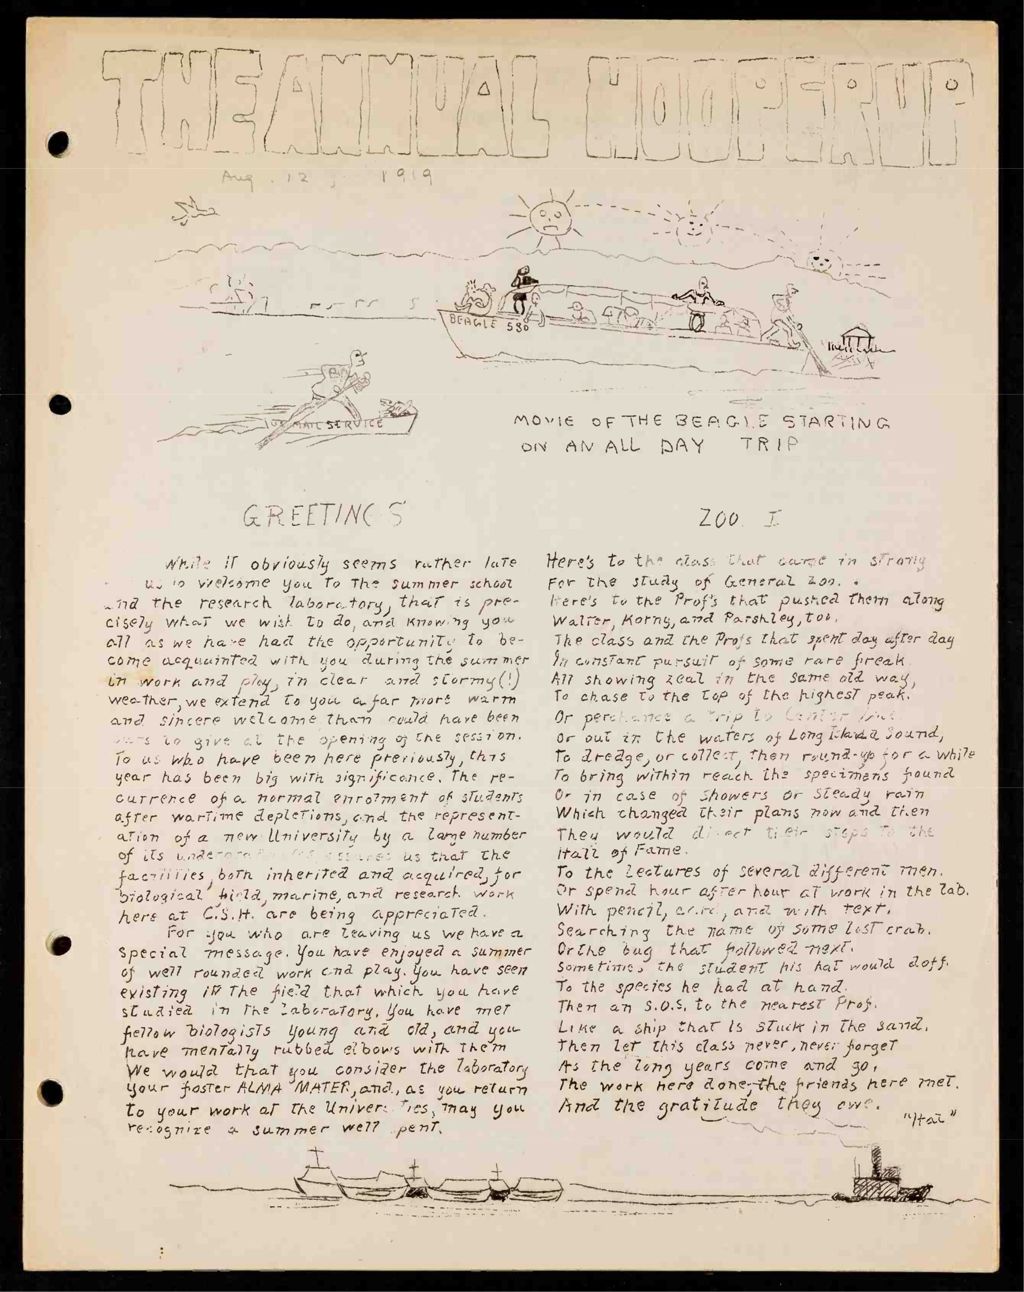 THE ANNUAL HOOPERUP
Aug. 12, 1919
BEAGLE 580
MAIL SERVICE
MOVIE OF THE BEAGLE STARTING
ON AN ALL DAY TRIP
GREETINGS
While it obviously seems rather late
us to welcome you to the summer school
and the research laboratory, that is pre-
cisely what we wish to do, and knowing you
all as we have had the opportunity to be-
come acquainted with you during the summer
in work and play, in clear and stormy(!)
weather, we extend to you a far more warm
and sincere welcome than could have been
ours to give at the opening of the session.
To us who have been here previously, this
year has been big with significance. The re-
currence of a normal enrolment of students
after wartime depletions, and the represent-
ation of a new University by a large number
of its us that the
facilities, both inherited and acquired, for
biological field, marine, and research work
here at C.S.H. are being appreciated.
For you who are leaving us we have a
special message. You have enjoyed a summer
of well rounded work and play. You have seen
existing in the field that which you have
studied in the laboratory. You have met
fellow biologists young and old, and you
have mentally rubbed elbows with them
We would that you consider the laboratory
your foster ALMA MATER, and, as you return
to your work at the Universities, may you
recognize a summer well spent.
ZOO. I
Here's to the class that came in strong
For the study of General Zoo.
Here's to the Prof's that pushed them along
Walter, Korny, and Parshley, too.
The class and the Profs that spent day after day
In constant pursuit of some rare freak.
All showing zeal in the same old way,
To chase to the top of the highest peak.
Or perchance a trip to Center
Or out in the waters of Long Island Sound,
To dredge, or collect, then round-up for a while
To bring within reach the specimens found
Or in case of showers or steady rain
Which changed their plans now and then
They would direct their steps to the
Hall of Fame.
To the lectures of several different men.
Or spend hour after hour at work in the lab.
With pencil, card, and with text.
Searching the name of some lost crab.
Or the bug that followed next.
Sometimes the student his hat would doff.
To the species he had at hand.
Then an S.O.S. to the nearest Prof.
Like a ship that is stuck in the sand.
Then let this class never, never forget
As the long years come and go.
The work here done, the friends here met.
And the gratitude they owe.
"Hal"